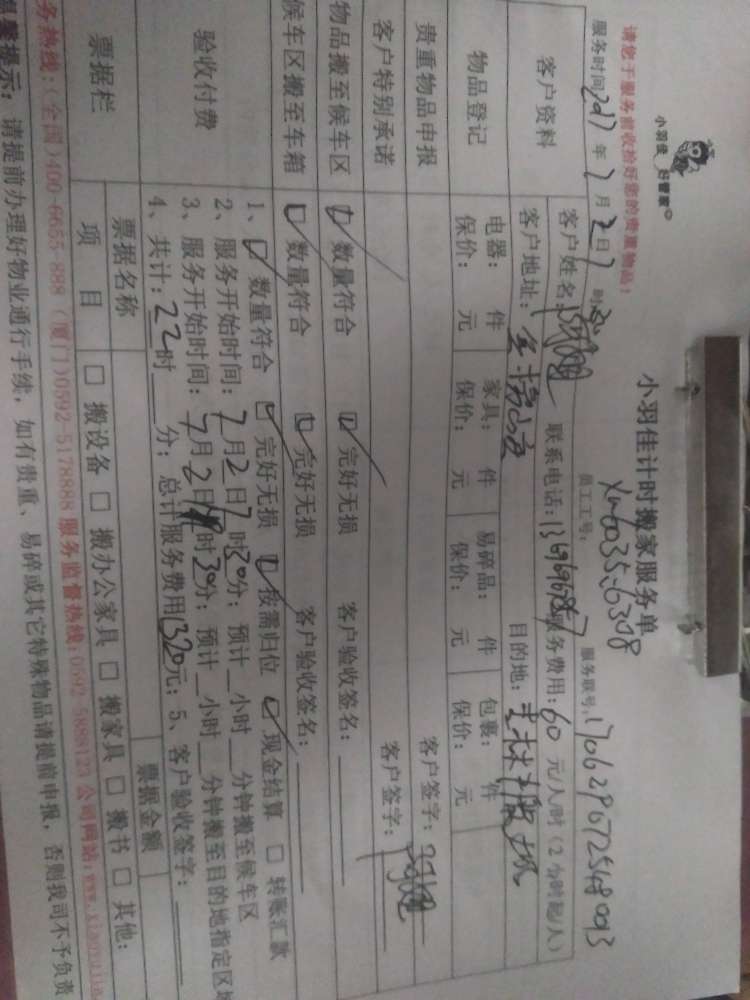 小羽佳 好管家
小羽佳计时搬家服务单
请您于服务前收拾好您的贵重物品!
员工工号: 服务联号: 170629072548093
服务时间 2017 年 7 月 2 日 7 时
客户资料 客户姓名: 联系电话: 服务费用: 60 元/人/时(2 小时起/人)
客户地址: 目的地:
物品登记 电器: 件 家具: 件 易碎品: 件 包裹: 件
保价: 元 保价: 元 保价: 元 保价: 元
贵重物品申报 客户签字:
客户特别承诺 客户签字:
物品搬至候车区 数量符合 完好无损 客户验收签名:
候车区搬至车箱 数量符合 完好无损 客户验收签名:
验收付费 1、 数量符合 完好无损 按需归位 现金结算 转账汇款
2、服务开始时间: 7 月 2 日 7 时 30 分; 预计 小时 分钟搬至候车区
3、服务开始时间: 7 月 2 日 时 30 分; 预计 小时 分钟搬至目的地指定区域
4、共计: 22 时 分; 总计服务费用 1320 元; 5、客户验收签字:
票据栏 票据名称 票据金额
项目 搬设备 搬办公家具 搬家具 搬书 其他:
务热线:(全国)400-6655-888 (厦门)0592-5178888 服务监督热线:0592-5888123 公司网站:www.
提示: 请提前办理好物业通行手续, 如有贵重、易碎或其它特殊物品请提前申报, 否则我司不予负责